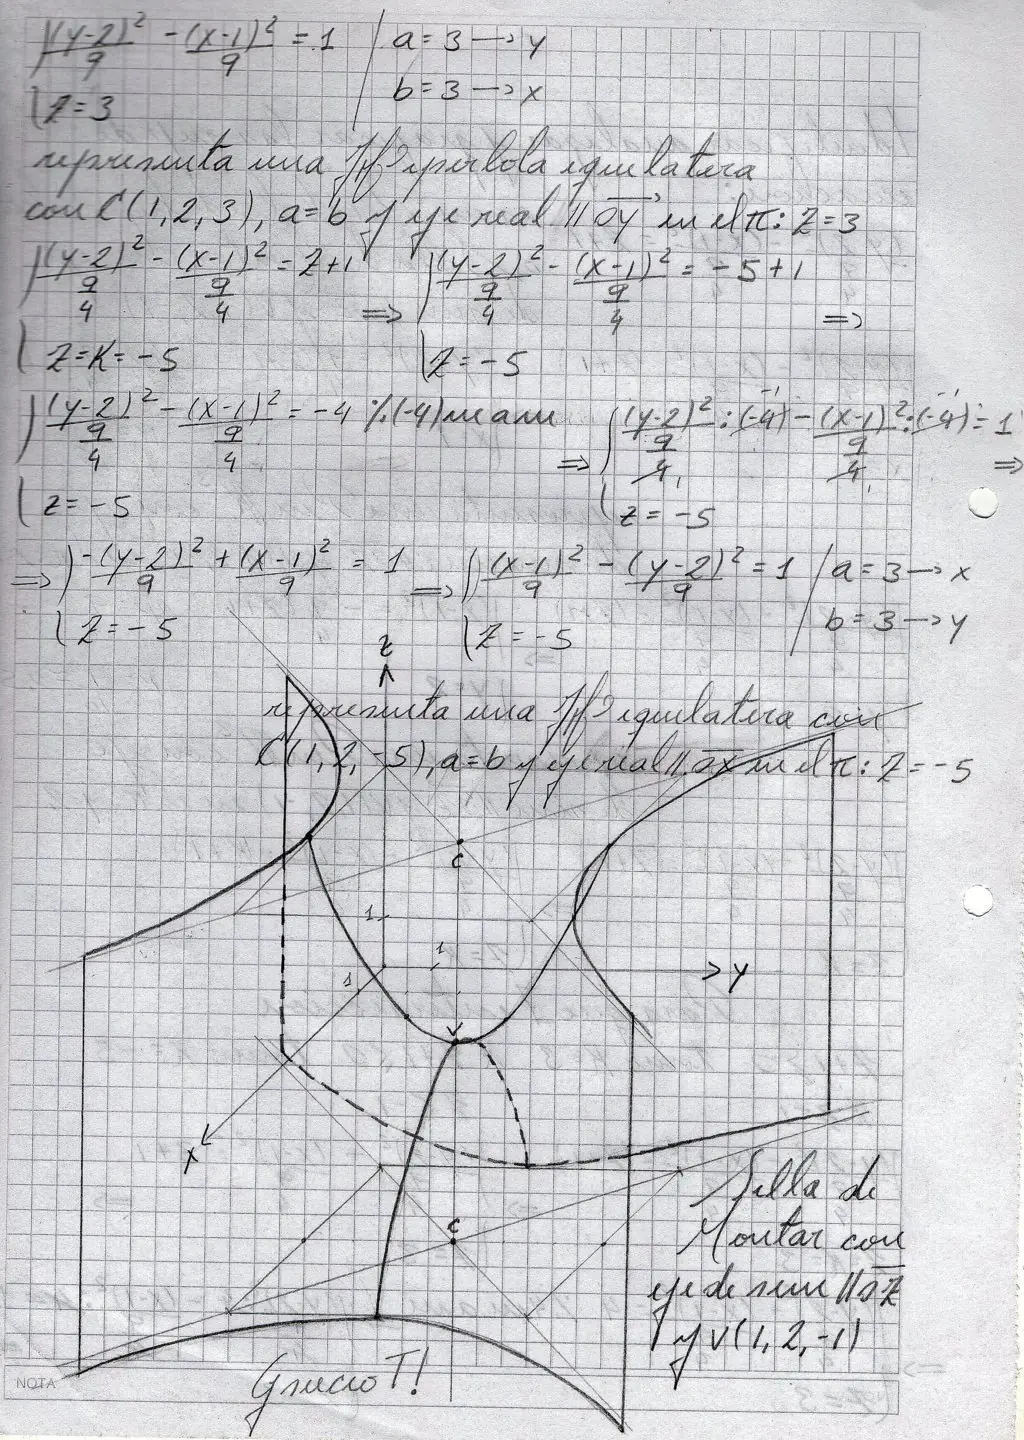 { (y-2)²/9 - (x-1)²/9 = 1 | a = 3 → y
{ z = 3 | b = 3 → x
representa una Hfpérbola equilatera
con C(1,2,3), a=b y eje real // oy en el π: z=3
{ (y-2)²/(9/4) - (x-1)²/(9/4) = z+1 ⇒ { (y-2)²/(9/4) - (x-1)²/(9/4) = -5+1 ⇒
{ z=K=-5 { z=-5
{ (y-2)²/(9/4) - (x-1)²/(9/4) = -4 %(-4) m a m ⇒ { (y-2)²/(9/4) : (-4) - (x-1)²/(9/4) : (-4) = 1 ⇒
{ z=-5 { z=-5
⇒ { -(y-2)²/9 + (x-1)²/9 = 1 ⇒ { (x-1)²/9 - (y-2)²/9 = 1 | a=3 → x
{ z=-5 { z=-5 | b=3 → y
z
representa una Hf equilatera con
C(1,2,-5), a=b y eje real // ox en el π: z=-5
C
1
1
1
y
V
x
Silla de
C
Montar con
eje de sim // oz
y V(1,2,-1)
Grueio T!
NOTA